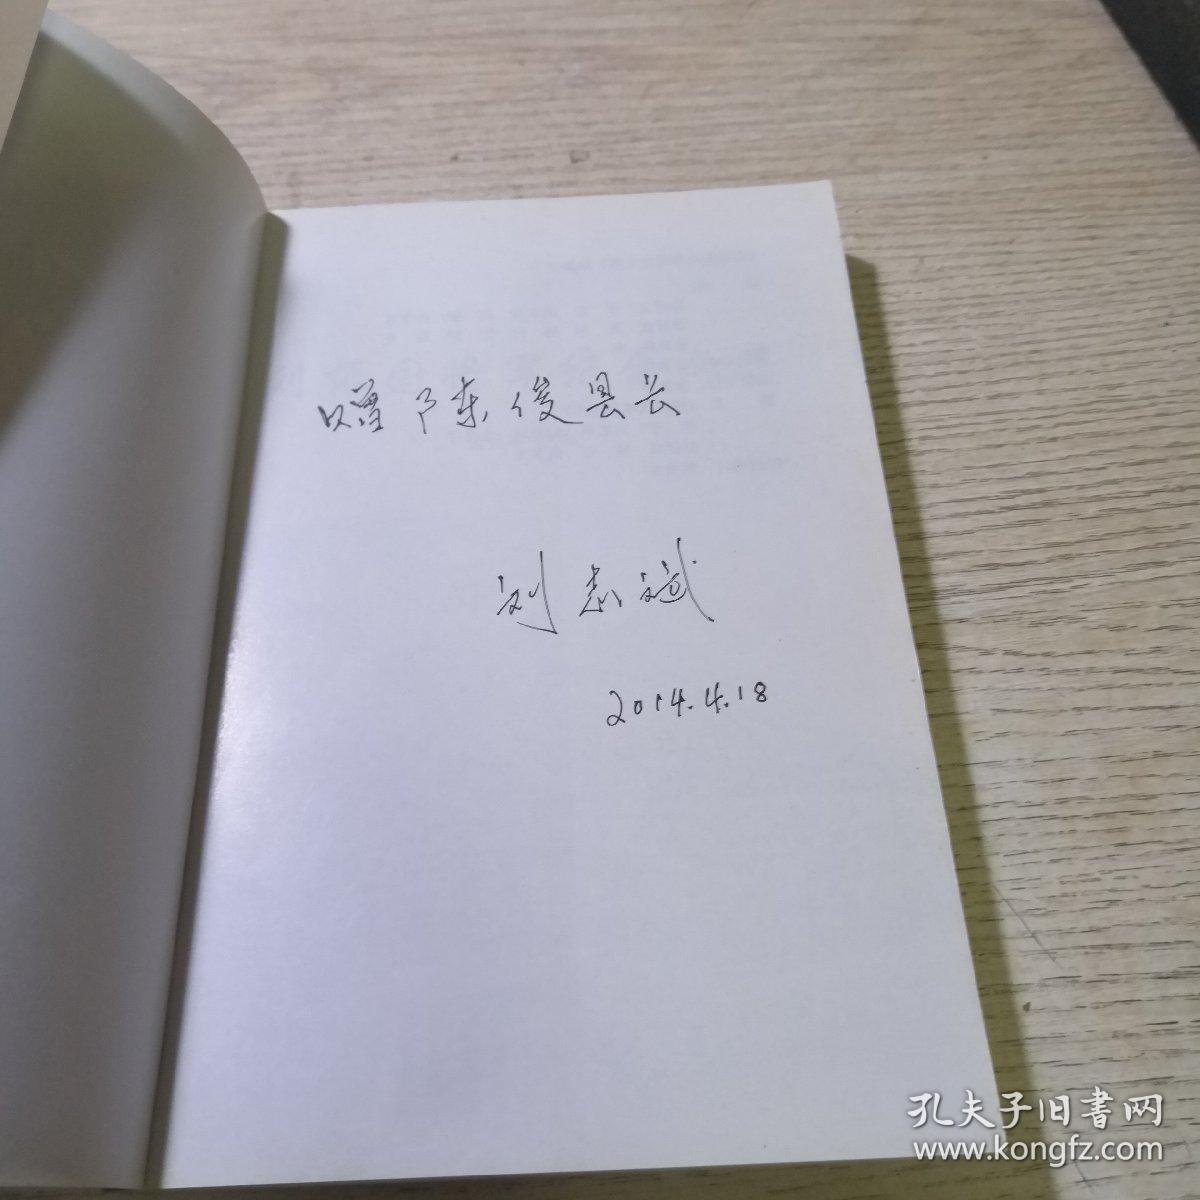 赠陈俊县长
刘志斌
2014.4.18
孔夫子旧书网
www.kongfz.com